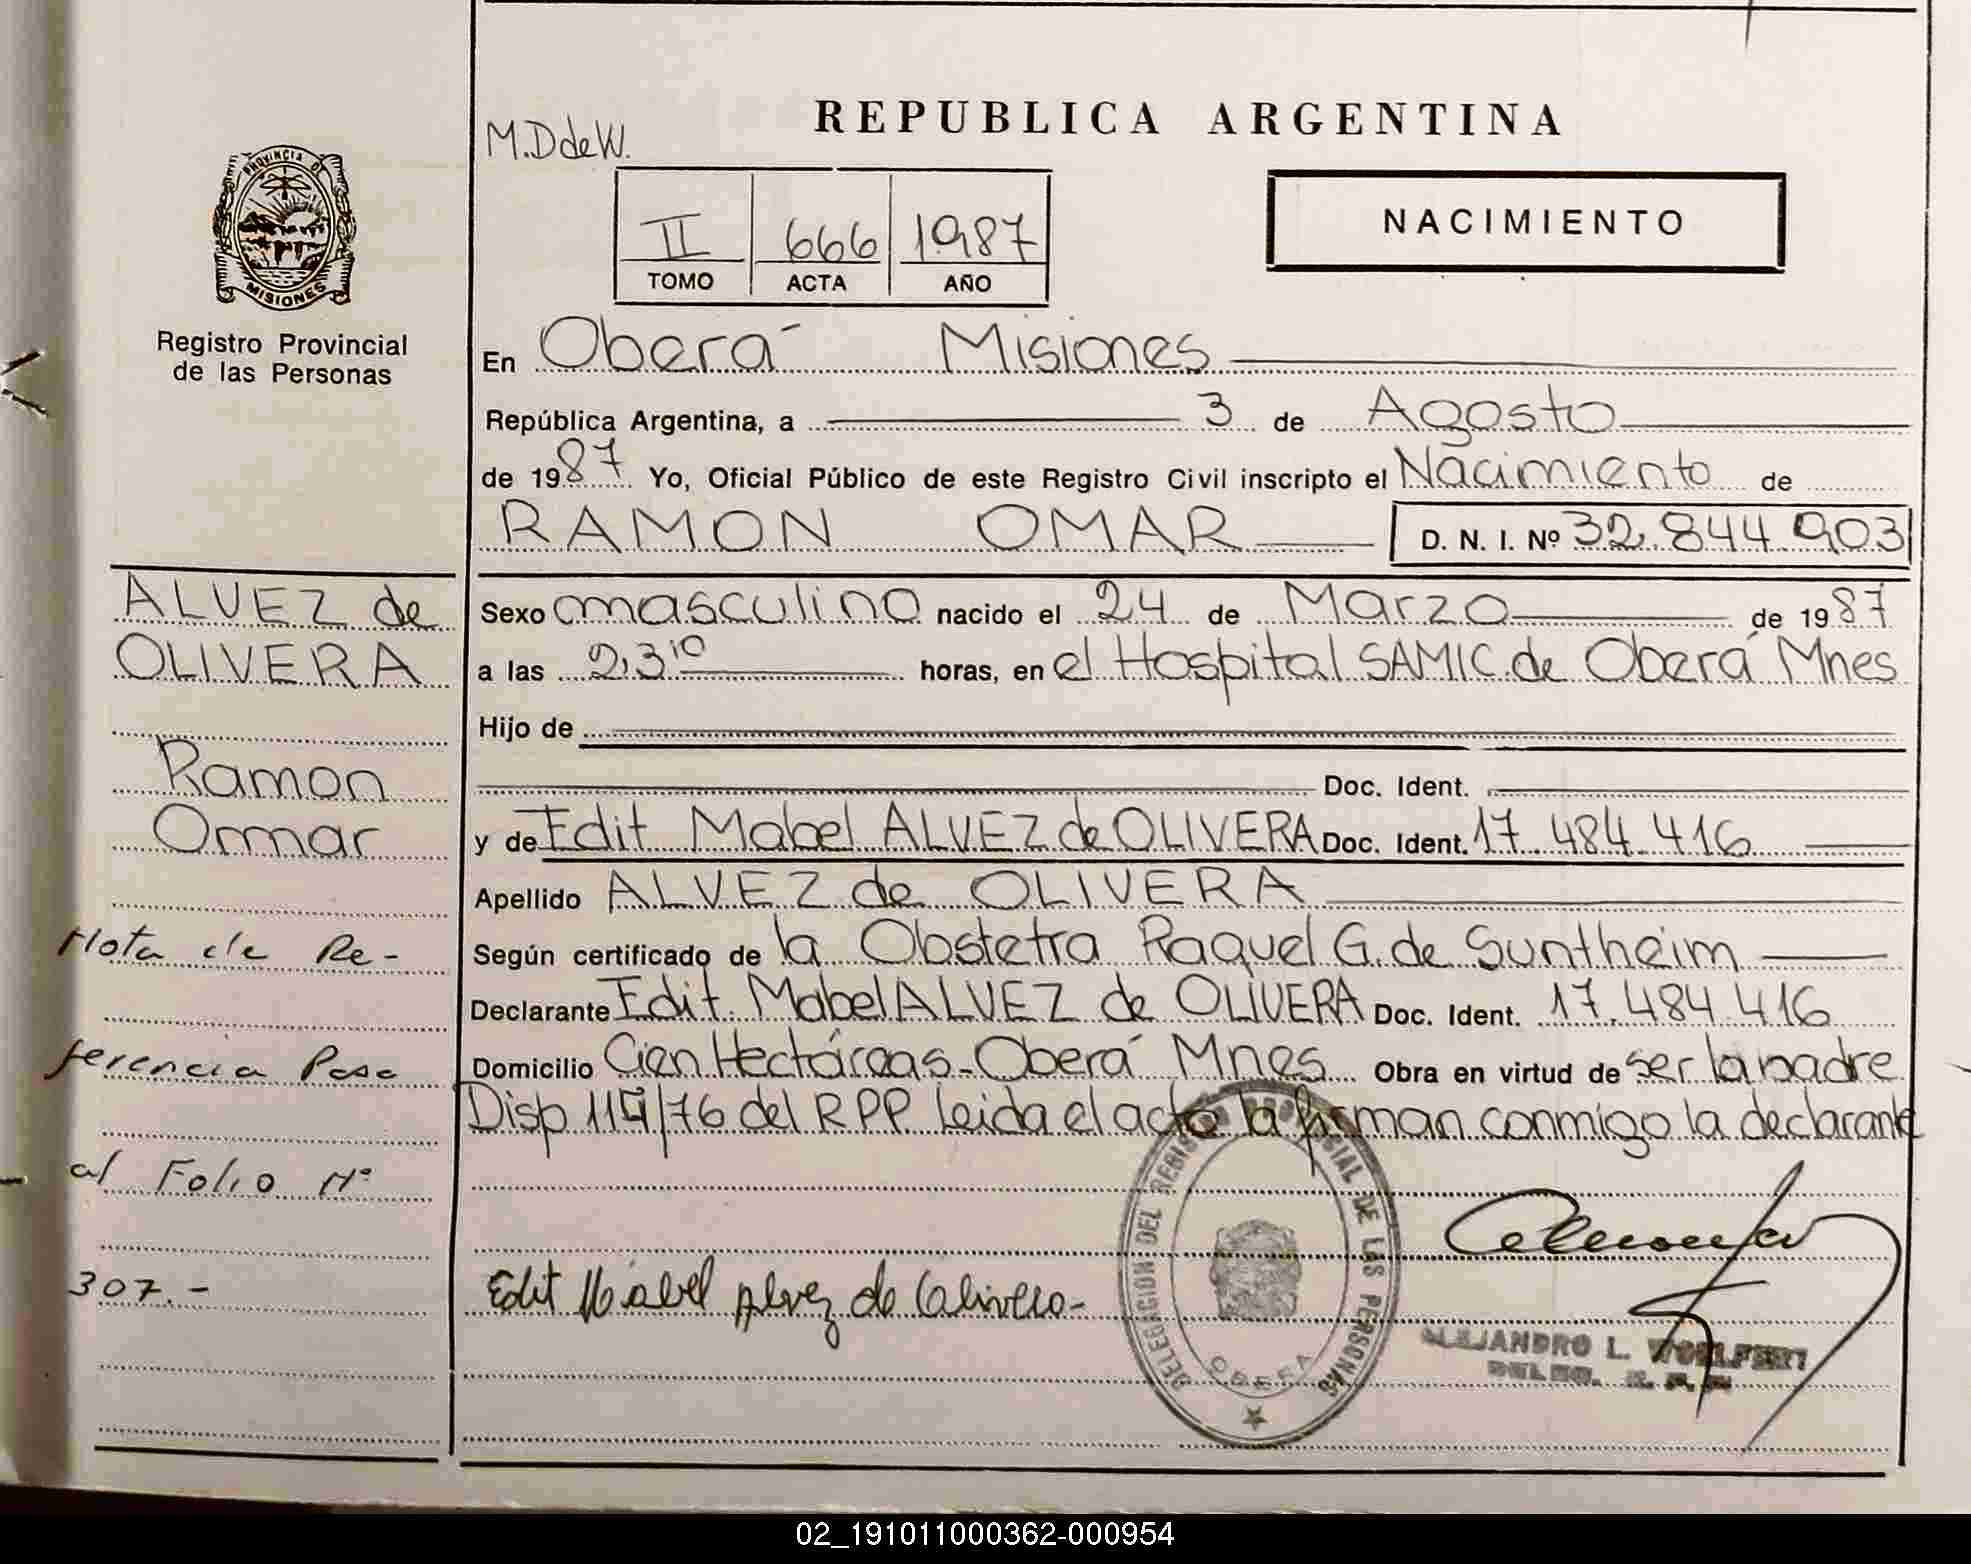 REPUBLICA ARGENTINA
M.D de W.
NACIMIENTO
II 666 1987
TOMO ACTA AÑO
PROVINCIA DE MISIONES
Registro Provincial
de las Personas
En Oberá Misiones
República Argentina, a 3 de Agosto
de 1987 Yo, Oficial Público de este Registro Civil inscripto el Nacimiento de
RAMON OMAR D. N. I. Nº 32.844.903
ALVEZ de
OLIVERA
Ramon
Omar
Nota de Re-
ferencia Pasa
al Folio Nº
307.-
Sexo masculino nacido el 24 de Marzo de 1987
a las 23,10 horas, en el Hospital SAMIC de Oberá Mnes
Hijo de
Doc. Ident.
y de Edit Mabel ALVEZ de OLIVERA Doc. Ident. 17.484.416
Apellido ALVEZ de OLIVERA
Según certificado de la Obstetra Raquel G. de Suntheim
Declarante Edit Mabel ALVEZ de OLIVERA Doc. Ident. 17.484.416
Domicilio Cien Hectáreas - Oberá Mnes Obra en virtud de ser la madre
Disp /76 del RPP. Leida el acta la firman conmigo la declarante
Edit Mabel Alvez de Olivera-
DELEGACION DEL REGISTRO PROVINCIAL DE LAS PERSONAS
OBERA
ALEJANDRO L. WOLFERT
DELEG. R. P. P.
02_191011000362-000954